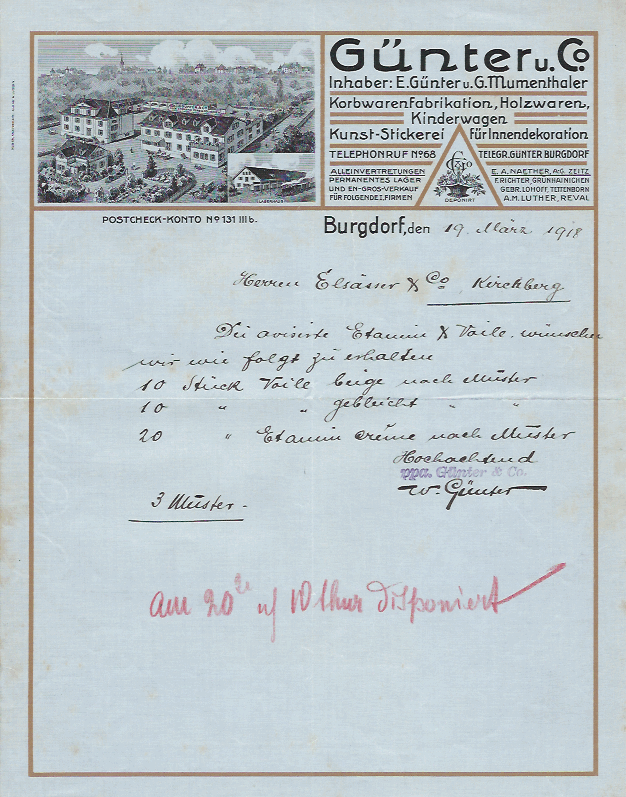 Günter u. Co.
Inhaber: E. Günter u. G. Mumenthaler
Korbwarenfabrikation, Holzwaren,
Kinderwagen
Kunst-Stickerei für Innendekoration
TELEPHONRUF No 68 TELEGR. GÜNTER BURGDORF
ALLEINVERTRETUNGEN
PERMANENTES LAGER
UND EN-GROS-VERKAUF
FÜR FOLGENDE I. FIRMEN
DEPONIRT
E. A. NAETHER, A:G. ZEITZ
F. RICHTER, GRÜNHAINICHEN
GEBR. LOHOFF, TEITENBORN
A. M. LUTHER, REVAL
LAGERHAUS
POSTCHECK-KONTO No 131 III b.
Burgdorf, den 19. März 1918
Herren Elsässer & Co, Kirchberg
Die avisirte Etamin & Voile wünschen
wir wie folgt zu erhalten
10 Stück Voile beige nach Muster
10 " " gebleicht " "
20 " Etamin crème nach Muster
Hochachtend
ppa. Günter & Co.
W. Günter
3 Muster.
am 20 a/ Wthur disponiert